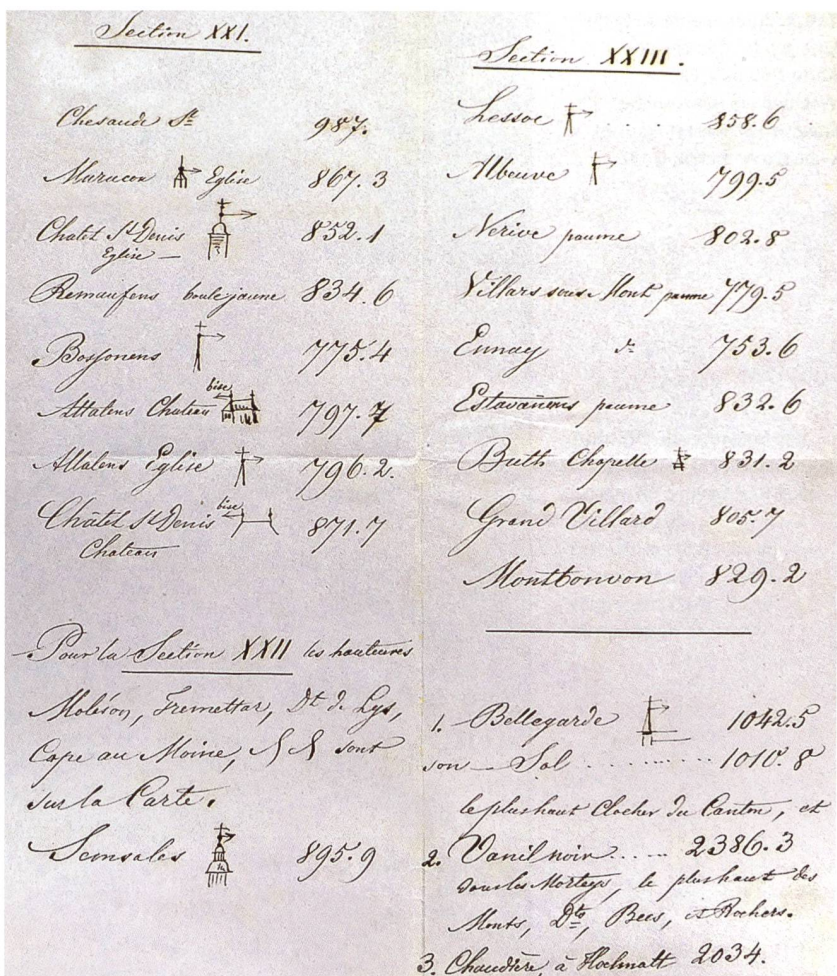 Section XXI.
Chesaude St 987.
Maracon Eglise 867.3
Chatel St Denis 852.1
Eglise —
Remaufens boule jaune 834.6
Bossonens 775.4
bise
Attalens Chateau 797.7
Attalens Eglise 796.2.
bise
Châtel St Denis 871.7
Chateau
Pour la Section XXII les hauteures
Moléson, Tremettaz, Dt de Lys,
Cape au Moine, & & sont
sur la Carte.
Semsales 895.9
Section XXIII.
Lessoc . . . . 858.6
Albeuve 799.5
Nerive paume 802.8
Villars sous Mont paume 779.5
Ennay do 753.6
Estavanens paume 832.6
Buth Chapelle 831.2
Grand Villard 805.7
Montbonvon 829.2
1. Bellegarde 1042.5
son — Sol . . . . . . . . . 1010.8
le plus haut Clocher du Canton, et
2. Vanil noir . . . . . . 2386.3
sous les Morteys, le plus haut des
Monts, Dts, Becs, et Rochers.
3. Chaudière, à Hochmatt 2034.